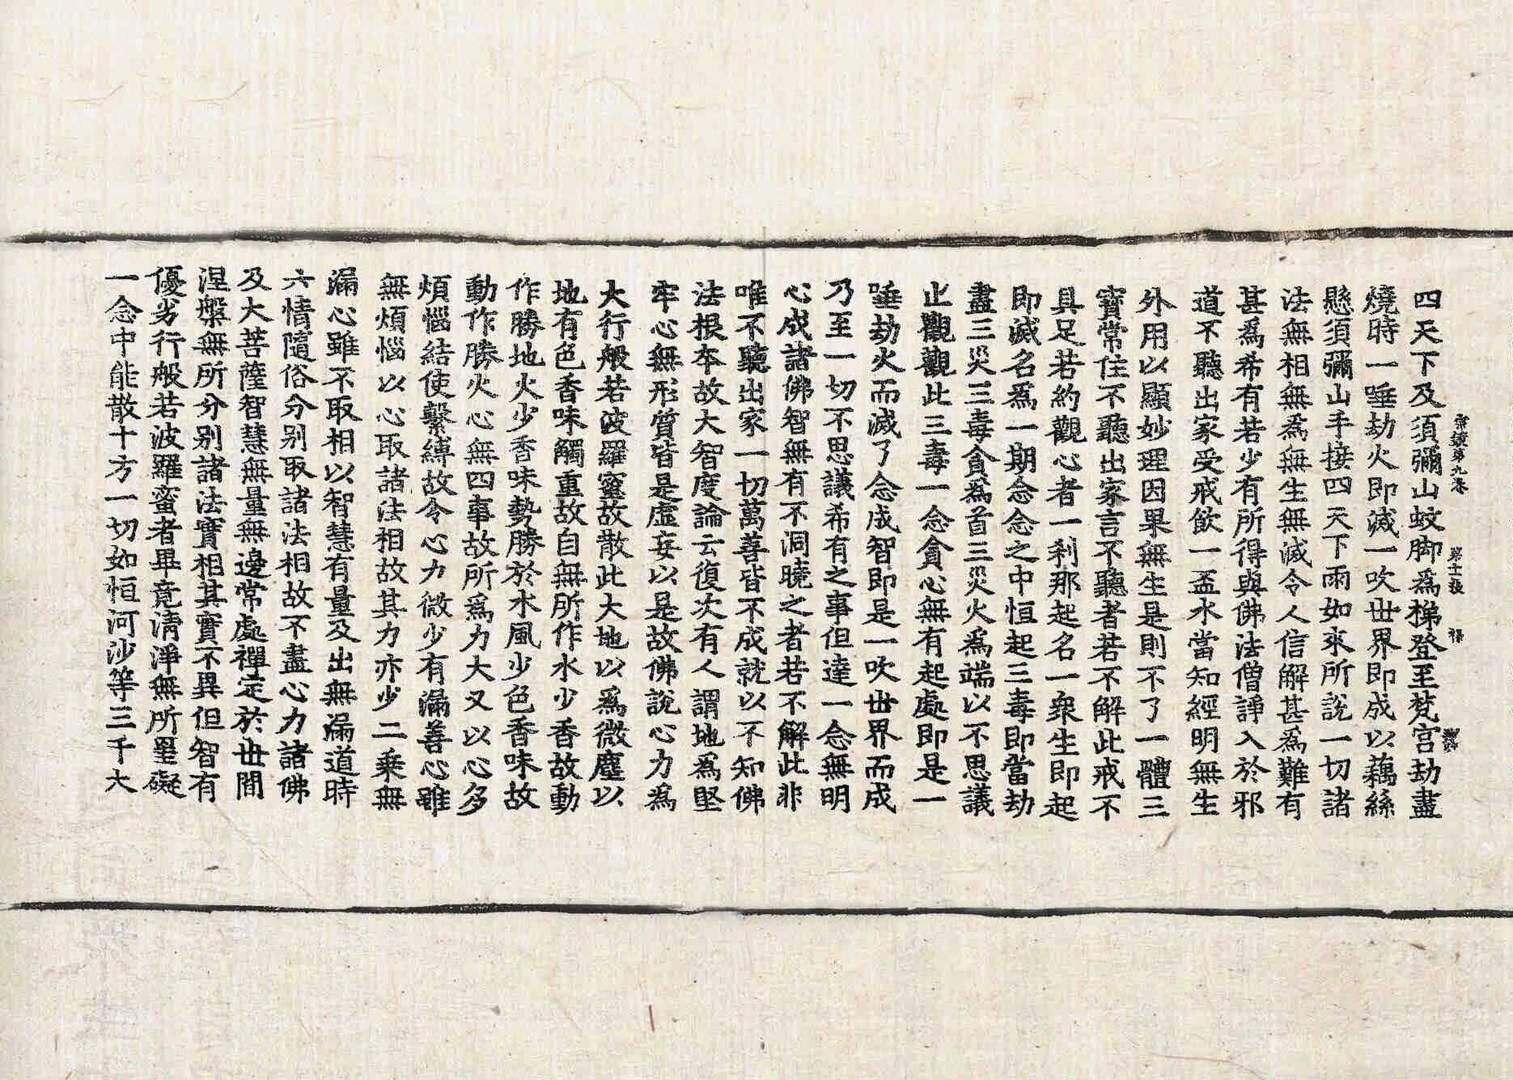 四天下及須彌山蚊脚爲梯登至梵宫劫盡
燒時一唾劫火即滅一吹世界即成以藕絲
懸須彌山手接四天下雨如來所說一切諸
法無相無爲無生無滅令人信解甚爲難有
甚爲希有若少有所得與佛法僧諍入於邪
道不聽出家受戒飲一盃水當知經明無生
外用以顯妙理因果無生是則不了一體三
寳常住不聽出家言不聽者若不解此戒不
具足若約觀心者一刹那起名一衆生即起
即滅名爲一期念念之中恒起三毒即當劫
盡三災三毒貪爲首三災火爲端以不思議
止觀觀此三毒一念貪心無有起處即是一
唾劫火而滅了念成智即是一吹世界而成
乃至一切不思議希有之事但達一念無明
心成諸佛智無有不洞曉之者若不解此非
唯不聽出家一切萬善皆不成就以不知佛
法根本故大智度論云復次有人謂地爲堅
牢心無形質皆是虛妄以是故佛說心力爲
大行般若波羅蜜故散此大地以爲微塵以
地有色香味觸重故自無所作水少香故動
作勝地火少香味勢勝於水風少色香味故
動作勝火心無四事故所爲力大又以心多
煩惱結使繫縛故令心力微少有漏善心雖
無煩惱以心取諸法相故其力亦少二乘無
漏心雖不取相以智慧有量及出無漏道時
六情隨俗分別取諸法相故不盡心力諸佛
及大菩薩智慧無量無邊常處禪定於世間
涅槃無所分別諸法實相其實不異但智有
優劣行般若波羅蜜者畢竟清淨無所罣礙
一念中能散十方一切如恒河沙等三千大